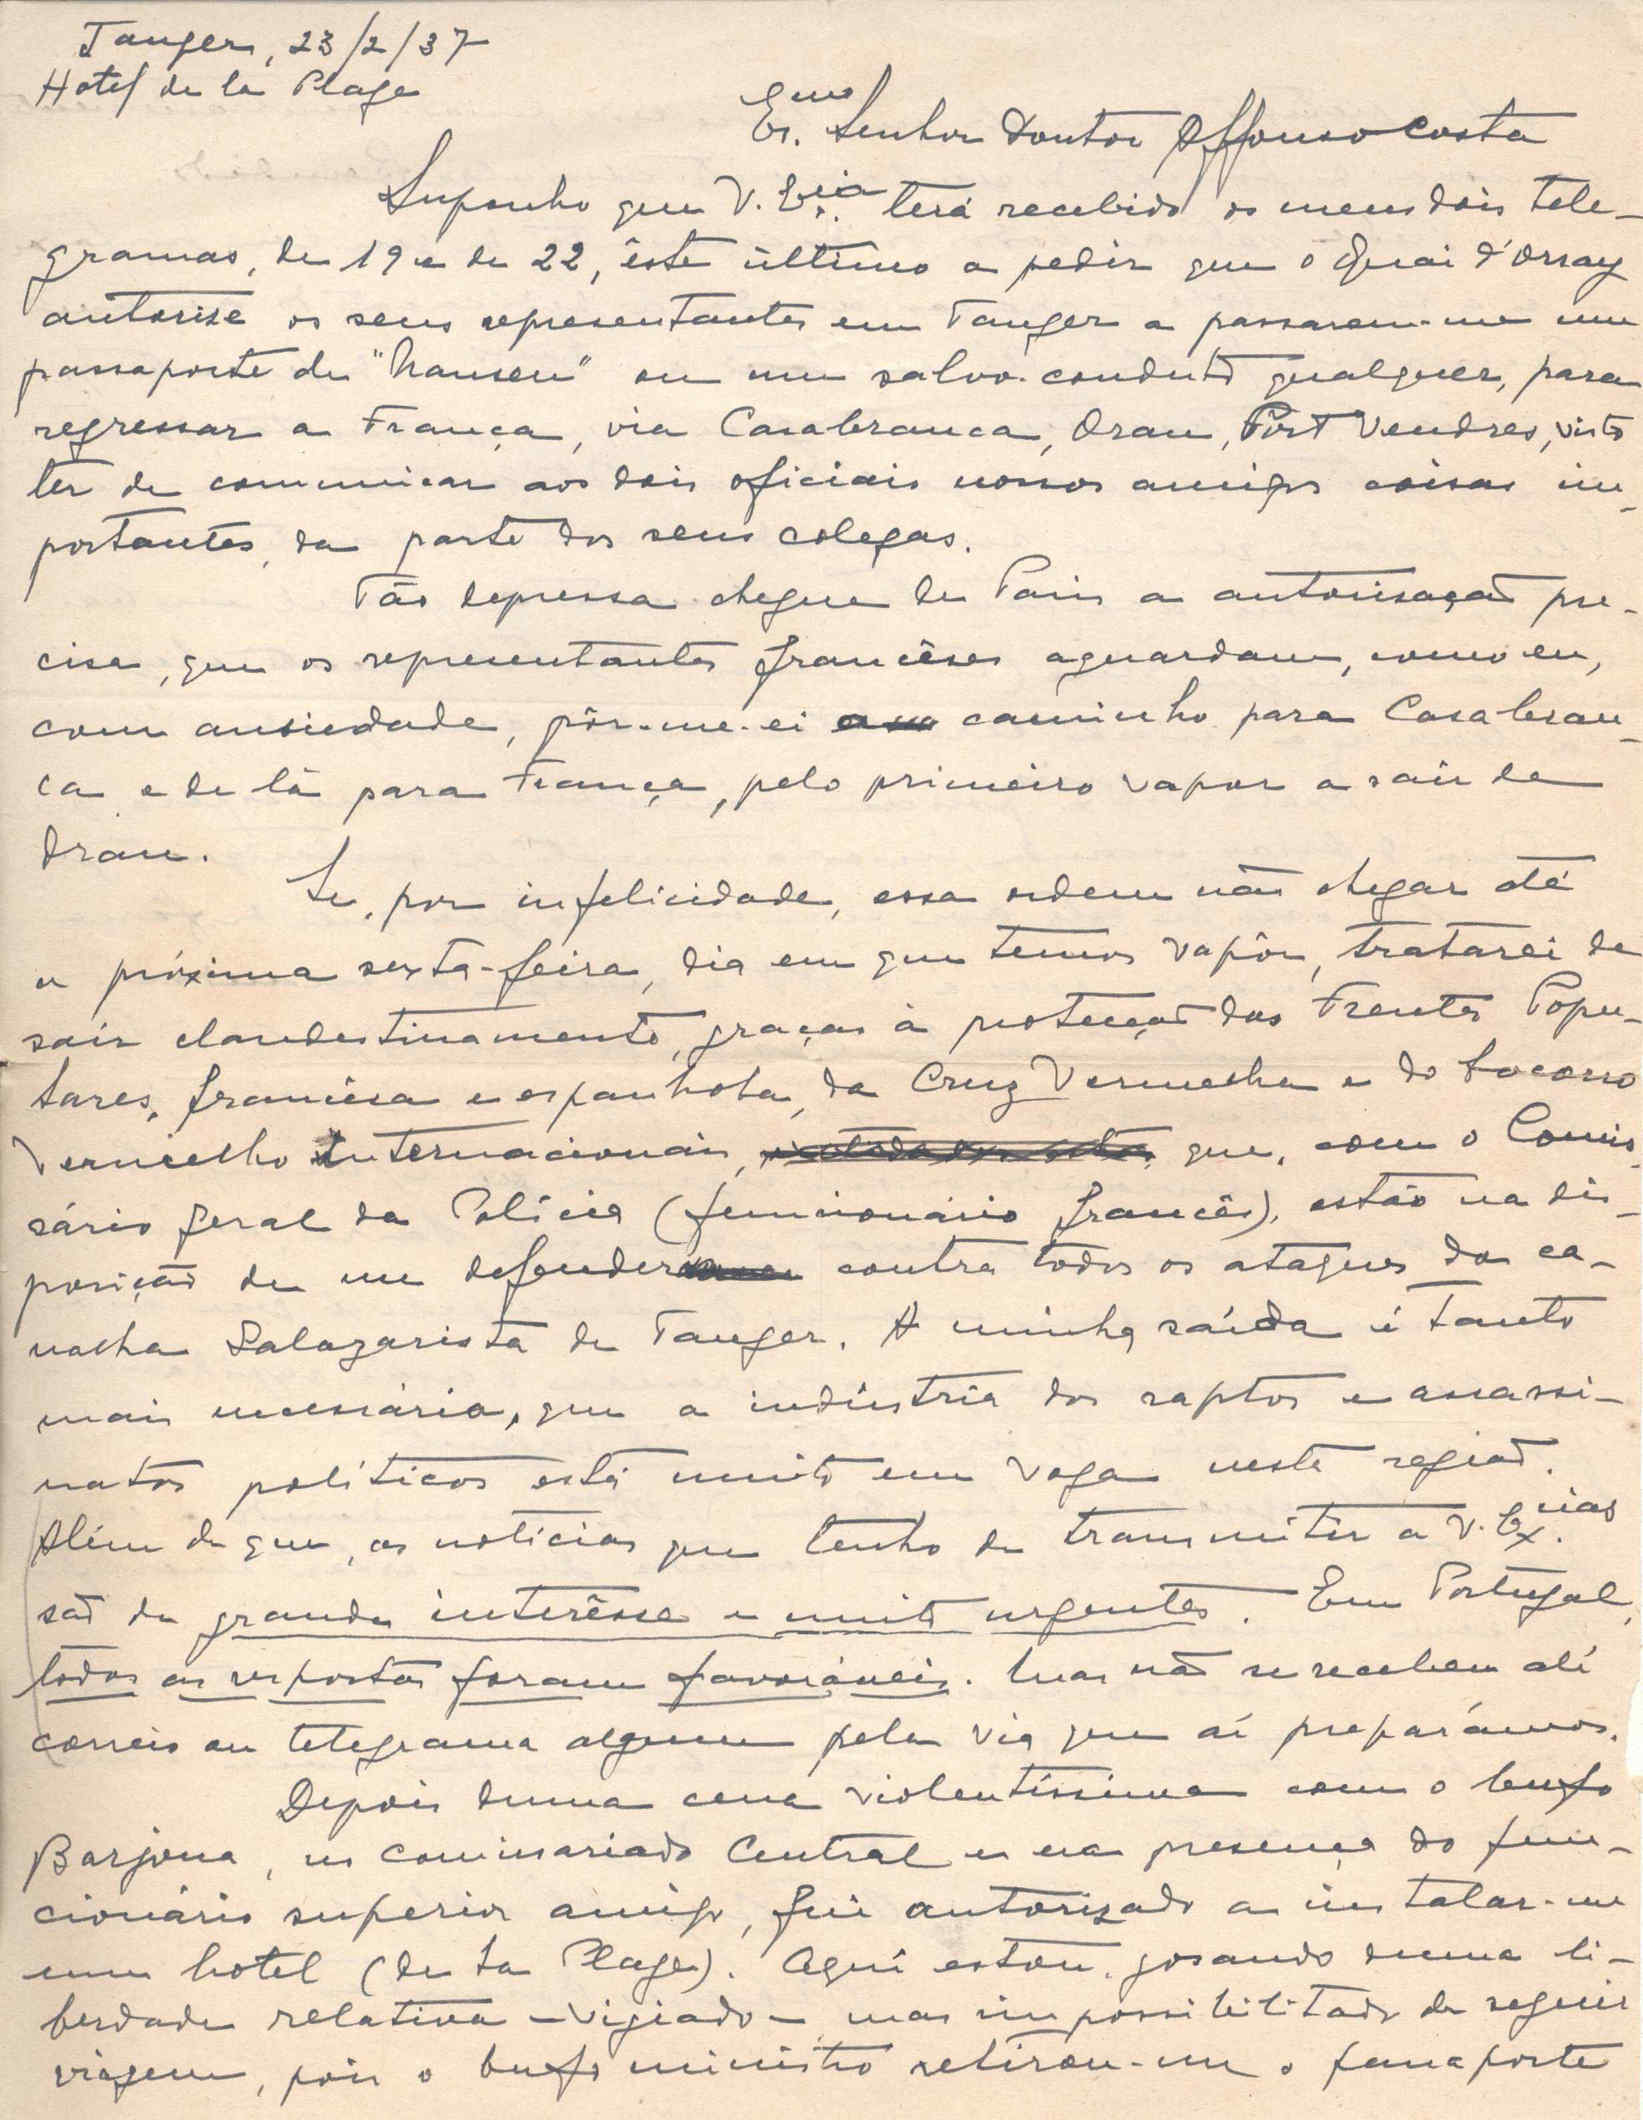 Tanger, 23/2/37
Hotel de la Plage
Exmo. Senhor Doutor Affonso Costa
Suponho que V. Excia. terá recebido os meus dois tele-
gramas, de 19 e de 22, êste último a pedir que o Quai d'Orsay
autorise os seus representantes em Tanger a passarem-me um
passaporte de "Nansen" ou um salvo-conduto qualquer, para
regressar a França, via Casabranca, Oran, Port Vendres, visto
ter de comunicar aos dois oficiais nossos amigos coisas im-
portantes, da parte dos seus colegas.
Tão depressa chegue de Paris a autorisação pre-
cisa, que os representantes francêses aguardam, como eu,
com ansiedade, pôr-me-ei a caminho para Casabran-
ca e de lá para França, pelo primeiro vapor a sair de
Oran.
Se, por infelicidade, essa ordem não chegar até
a próxima sexta-feira, dia em que temos vapôr, tratarei de
saír clandestinamente, graças à protecção das Frentes Popu-
lares, francêsa e espanhola, da Cruz Vermelha e do Socorro
Vermelho Internacionais, que, com o Comis-
sário geral da Polícia (funcionário francês), estão na dis-
posição de me defender contra todos os ataques da ca-
nalha Salazarista de Tanger. A minha saída é tanto
mais necessária, que a indústria dos raptos e assassi-
natos políticos está muito em voga nesta região.
Além de que, as notícias que tenho de transmitir a V. Excias.
são de grande interêsse e muito urgentes. Em Portugal,
todas as respostas foram favoráveis. Mas não se recebeu ali
correio ou telegrama algum pela via que aí preparámos.
Depois duma cena violentíssima com o bufo
Barjona, no comissariado Central e na presença do fun-
cionário superior amigo, fui autorizado a instalar-me
num hotel (de la Plage). Aqui estou, gosando duma li-
berdade relativa - vigiado - mas impossibilitado de seguir
viagem, pois o bufo ministro retirou-me o passaporte